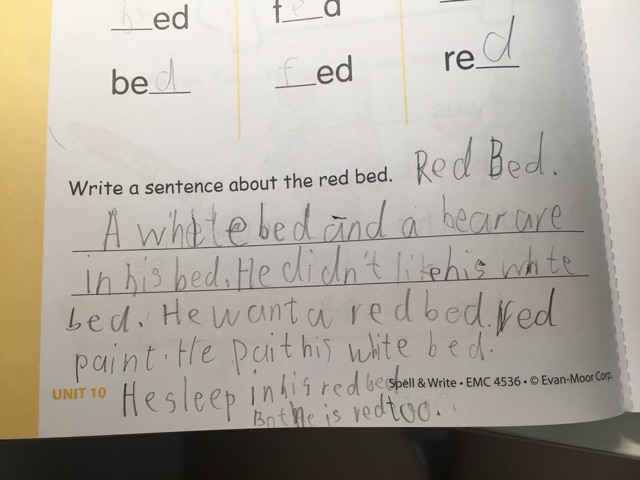 __ed f__d
bed fed red
Write a sentence about the red bed. Red Bed.
A white bed and a bear are
in his bed. He didn't like his white
bed. He want a red bed. red
paint. He pait his white bed.
UNIT 10 He sleep in his red bed Spell & Write • EMC 4536 • © Evan-Moor Corp.
But he is red too.